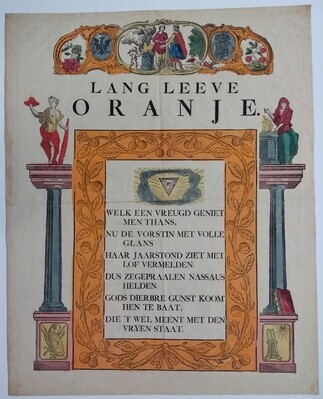 LANG LEEVE
ORANJE.
WELK EEN VREUGD GENIET
MEN THANS,
NU DE VORSTIN MET VOLLE
GLANS
HAAR JAARSTOND ZIET MET
LOF VERMELDEN.
DUS ZEGEPRAALEN NASSAUS
HELDEN.
GODS DIERBRE GUNST KOOM'
HEN TE BAAT,
DIE 'T WEL MEENT MET DEN
VRYEN STAAT.